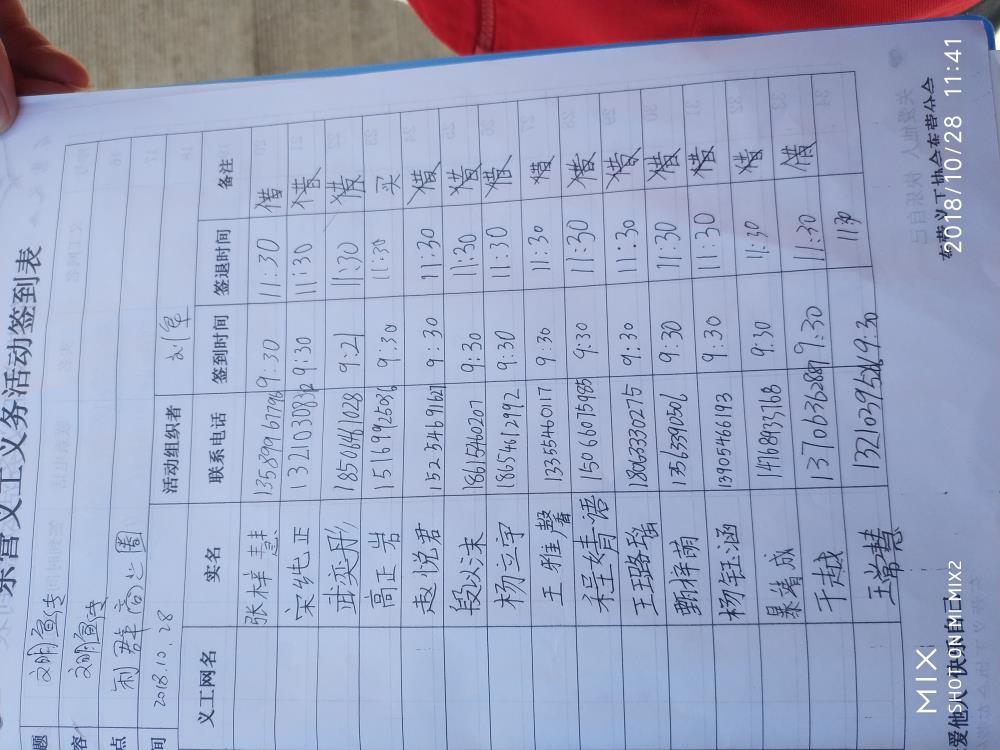 东营义工义务活动签到表
题 文明宣传
容 文明宣传
点 利群商业圈
间 2018.10.28 活动组织者
义工网名 实名 联系电话 签到时间 签退时间 备注
张梓慧 13589967796 9:30 11:30 借
宋纯正 13210308382 9:30 11:30 借
武奕彤 18506461028 9:21 11:30 借
高正岩 15169925096 9:30 11:30 买
赵悦君 15254691627 9:30 11:30 借
段以沫 18615460207 9:30 11:30 借
杨立宇 18654612992 9:30 11:30 借
王雅馨 13355460117 9:30 11:30 借
程婧语 15066075985 9:30 11:30 借
王璐瑶 18063330275 9:30 11:30 借
甄梓萌 13563390506 9:30 11:30 借
杨钰涵 13905466193 9:30 11:30 借
暴靖成 14768933768 9:30 11:30 借
于越 13706362889 9:30 11:30 借
王常慧 13210295216 9:30 11:30
爱他人 快乐自己
东营义工协会东营分会
MIX
SHOT ON MI MIX2
2018/10/28 11:41